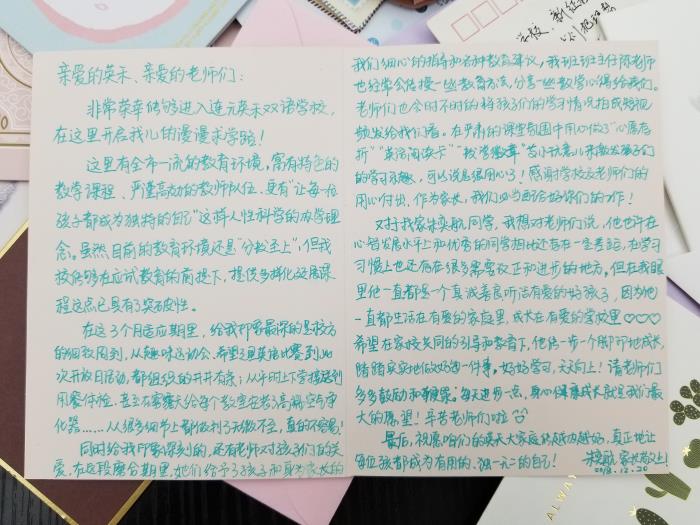 亲爱的英禾、亲爱的老师们：
非常荣幸能够进入连元英禾双语学校，
在这里开启我儿的漫漫求学路！
这里有全市一流的教育环境，富有特色的
教学课程、严谨高效的教师队伍，更有“让每一位
孩子都成为独特的自己”这样人性科学的办学理
念。虽然目前的教育环境还是“分数至上”，但我
校能够在应试教育的前提下，提供多样化发展课
程这点已具有了突破性。
在这3个月适应期里，给我印象最深的是校方
的细致周到，从趣味运动会、希望之星英语比赛到
次开放日活动，都组织的井井有条；从平时上下学接送到
用餐体检，甚至在雾霾天给每个教室都装了高端空气净
化器……从很多细节上都做到了无微不至，真的不容易！
同时给我印象深刻的，还有老师对孩子们的关
爱，在这段磨合期里，她们给予了孩子和身为家长的
我们细心的指导和各种教育建议，我班班主任陈老师
也经常会传授一些教育方法，分享一些教学心得给我们。
老师们也会时不时的将孩子们的学习情况拍成短视
频发给我们看。在严肃的课堂氛围中用心做了“心愿存
折”“英语阅读卡”“数学徽章”等小玩意儿来激发孩子们
的学习兴趣，可以说是很用心了！感谢学校及老师们的
用心付出，作为家长，我们必当配合好你们的工作！
对于我家奕航同学，我想对老师们说，他也许在
心智发展水平上和优秀的同学相比还存在一些差距，在学习
习惯上也还存在很多需要改正和进步的地方。但在我眼
里他一直都是一个真诚善良听话有爱的好孩子，因为他
一直都生活在有爱的家庭里，成长在有爱的学校里♡♡♡
希望在家校共同的引导和教育下，他能一步一个脚印地成长，
踏踏实实地做好每一件事。好好学习，天天向上！请老师们
多多鼓励和鞭策。每天进步一点，身心健康成长就是我们最
大的愿望！辛苦老师们啦
最后，祝愿咱们的英禾大家庭能越办越好，真正地让
每位孩都成为有用的、独一无二的自己！
奕航家长敬上！
2018.12.20
学校
ALWAY